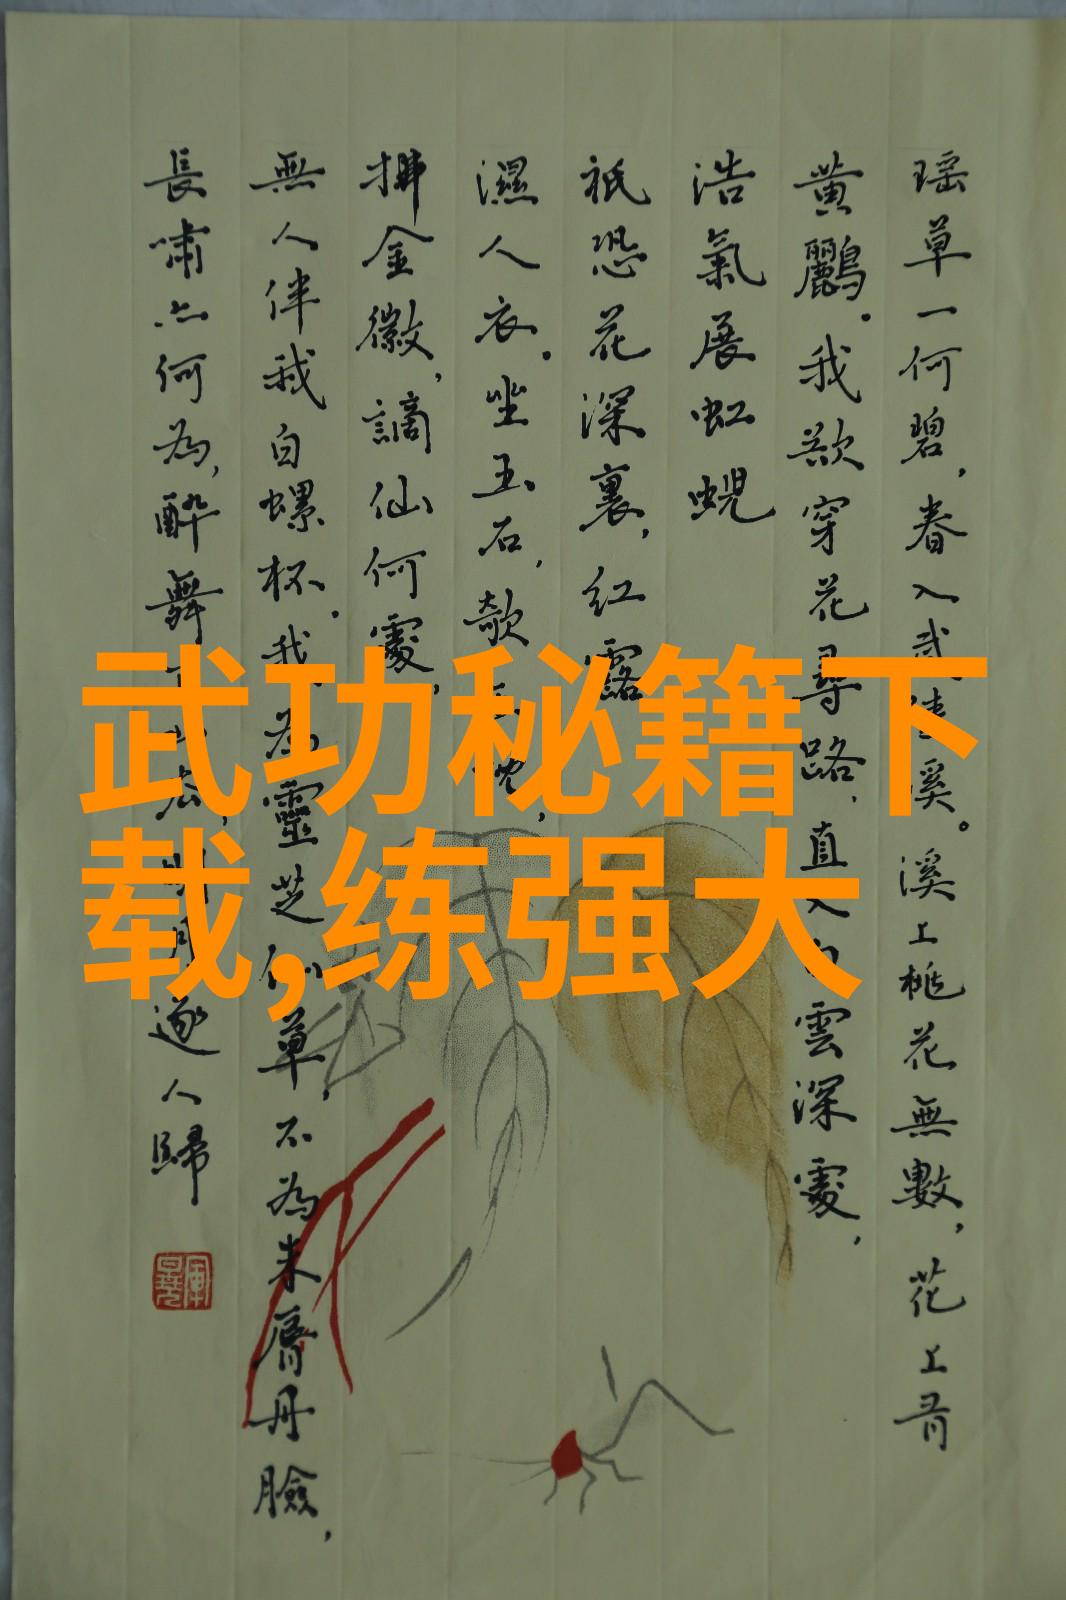 瑶草一何碧,春入武陵溪。溪上桃花無數,花上有
黄鸝。我欲穿花尋路,直入白雲深處,
浩氣展虹蜺
祇恐花深裏,紅露
濕人衣。坐玉石,欹玉枕,
拂金徽,謫仙何處,
無人伴我白螺杯。我為靈芝仙草,不為朱脣丹臉,
長嘯亦何為,醉舞下山去,明月逐人歸
武功秘籍下
载,练强大